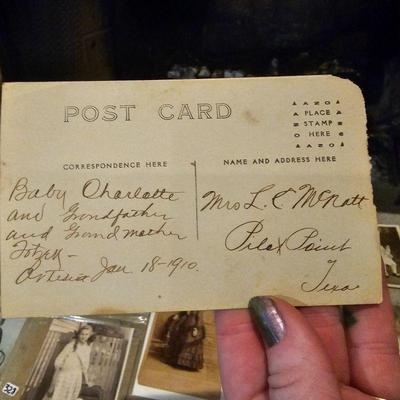 POST CARD
AZO
PLACE
STAMP
HERE
AZO
CORRESPONDENCE HERE
NAME AND ADDRESS HERE
Baby Charlotte
and Grandfather
and Grandmother
Jan 18-1910.
Mrs L. E McNatt
Pilot Point
Texas